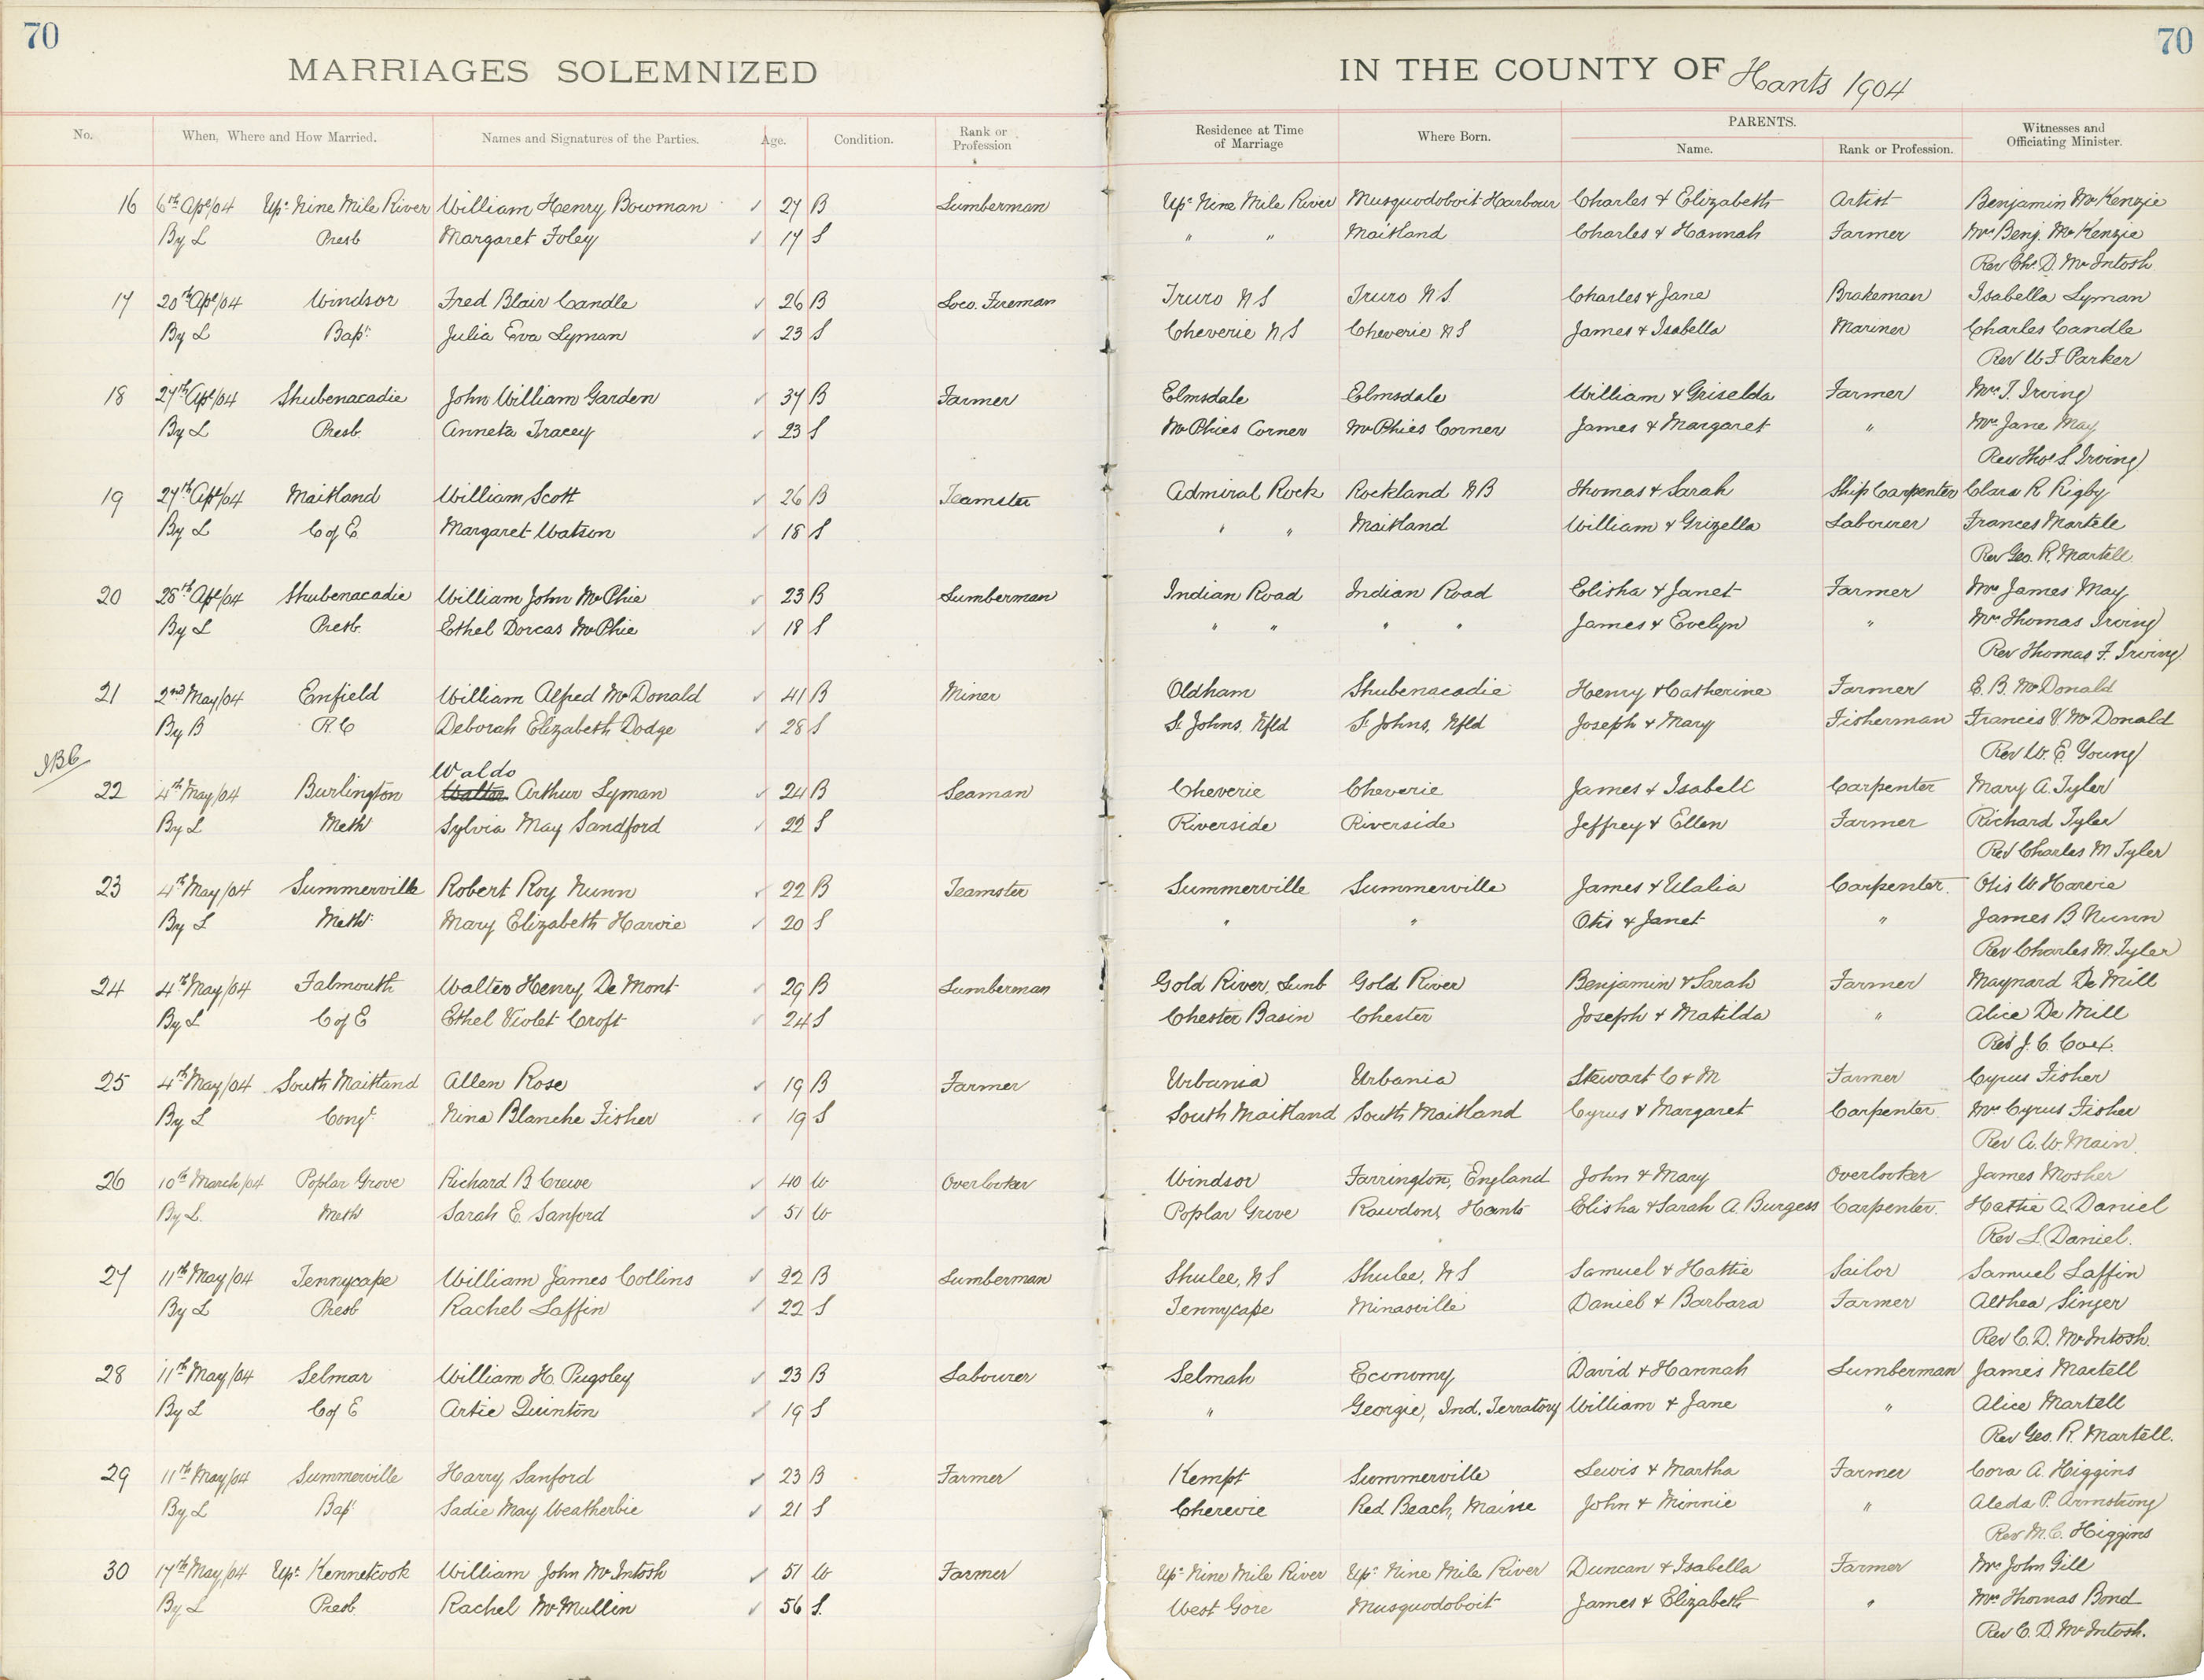 70
70
MARRIAGES SOLEMNIZED
IN THE COUNTY OF Hants 1904
No. When, Where and How Married. Names and Signatures of the Parties. Age. Condition. Rank or Profession Residence at Time of Marriage Where Born. PARENTS. Name. Rank or Profession. Witnesses and Officiating Minister.
16 6th Apl/04 Upr Nine Mile River William Henry Bowman ✓ 27 B Lumberman Upr Nine Mile River Musquodoboit Harbour Charles & Elizabeth Artist Benjamin McKenzie
By L Presb Margaret Foley ✓ 17 S " " Maitland Charles & Hannah Farmer Mrs Benj. McKenzie
Rev Chs. D. McIntosh
17 20th Apl/04 Windsor Fred Blair Candle ✓ 26 B Loco. Fireman Truro N S Truro N S Charles & Jane Brakeman Isabella Lyman
By L Bapt Julia Eva Lyman ✓ 23 S Cheverie N S Cheverie N S James & Isabella Mariner Charles Candle
Rev W F Parker
18 27th Apl/04 Shubenacadie John William Garden ✓ 37 B Farmer Elmsdale Elmsdale William & Griselda Farmer Mrs T. Irving
By L Presb. Anneta Tracey ✓ 23 S McPhies Corner McPhies Corner James & Margaret " Mrs Jane May
Rev Thos S Irving
19 27th Apl/04 Maitland William Scott ✓ 26 B Teamster Admiral Rock Rockland N B Thomas & Sarah Ship Carpenter Clara R Rigby
By L C of E Margaret Watson ✓ 18 S " " Maitland William & Grizella Labourer Frances Martele
Rev Geo. R. Martell
20 28th Apl/04 Shubenacadie William John McPhie ✓ 23 B Lumberman Indian Road Indian Road Elisha & Janet Farmer Mrs James May
By L Presb. Ethel Dorcas McPhie ✓ 18 S " " " " James & Evelyn " Mrs Thomas Irving
Rev Thomas F. Irving
21 2nd May/04 Enfield William Alfred McDonald ✓ 41 B Miner Oldham Shubenacadie Henry & Catherine Farmer E. B. McDonald
By B R. C Deborah Elizabeth Dodge ✓ 28 S St Johns. Nfld St Johns, Nfld Joseph & Mary Fisherman Francis V. McDonald
Rev W. E. Young
Waldo
22 4th May/04 Burlington Walter Arthur Lyman ✓ 24 B Seaman Cheverie Cheverie James & Isabell Carpenter Mary A. Tyler
By L Meth Sylvia May Sandford ✓ 22 S Riverside Riverside Jeffrey & Ellen Farmer Richard Tyler
Rev Charles M Tyler
23 4th May/04 Summerville Robert Roy Nunn ✓ 22 B Teamster Summerville Summerville James & Ulalia Carpenter. Otis W Harvie
By L Meth Mary Elizabeth Harvie ✓ 20 S " " Otis & Janet " James B Nunn
Rev Charles M. Tyler
24 4th May/04 Falmouth Walter Henry De Mont ✓ 29 B Lumberman Gold River, Lunb Gold River Benjamin & Sarah Farmer Maynard De Mill
By L C of E Ethel Violet Croft ✓ 24 S Chester Basin Chester Joseph & Matilda " Alice De Mill
Rev J. C. Cox.
25 4th May/04 South Maitland Allen Rose ✓ 19 B Farmer Urbania Urbania Stewart C & M Farmer Cyrus Fisher
By L Congl Nina Blanche Fisher ✓ 19 S South Maitland South Maitland Cyrus & Margaret Carpenter. Mrs Cyrus Fisher
Rev A. W. Main.
26 10th March/04 Poplar Grove Richard B Crewe ✓ 40 W Overlooker Windsor Farrington, England John & Mary Overlooker James Mosher
By L. Meth Sarah E. Sanford ✓ 51 W Poplar Grove Rawdon, Hants Elisha & Sarah A. Burgess Carpenter. Hattie A. Daniel
Rev L. Daniel.
27 11th May/04 Tennycape William James Collins ✓ 22 B Lumberman Shulee, N S Shulee, N S Samuel & Hattie Sailor Samuel Laffin
By L Presb Rachel Laffin ✓ 22 S Tennycape Minasville Daniel & Barbara Farmer Althea Singer
Rev C. D. McIntosh.
28 11th May/04 Selmar William H. Pugsley ✓ 23 B Labourer Selmah Economy David & Hannah Lumberman James Martell
By L C of E Artie Quinton ✓ 19 S " Georgie, Ind. Terratory William & Jane " Alice Martell
Rev Geo. R. Martell.
29 11th May/04 Summerville Harry Sanford ✓ 23 B Farmer Kempt Summerville Lewis & Martha Farmer Cora A. Higgins
By L Bap Sadie May Weatherbie ✓ 21 S Cherevie Red Beach, Maine John & Minnie " Aleda P. Armstrong
Rev M. C. Higgins
30 17th May/04 Upr Kennetcook William John McIntosh ✓ 51 W Farmer Upr Nine Mile River Upr Nine Mile River Duncan & Isabella Farmer Mrs John Gill
By L Presb. Rachel McMullin ✓ 56 S. West Gore Musquodoboit James & Elizabeth " Mrs Thomas Bond
Rev C. D. McIntosh.